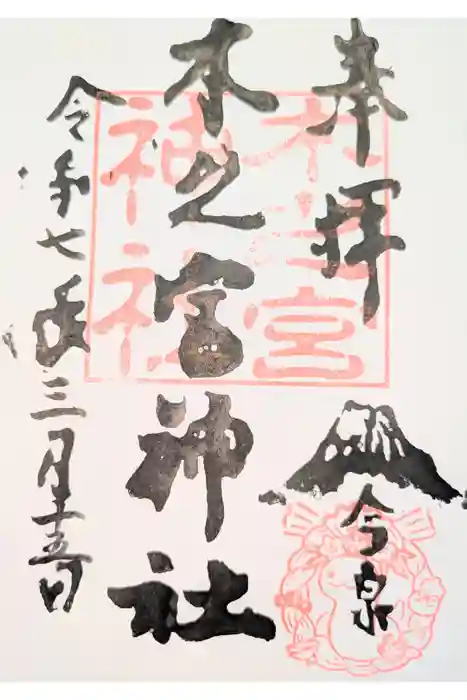 奉拝
今泉
木之宮
神社
木之宮神社
令和七年三月十五日